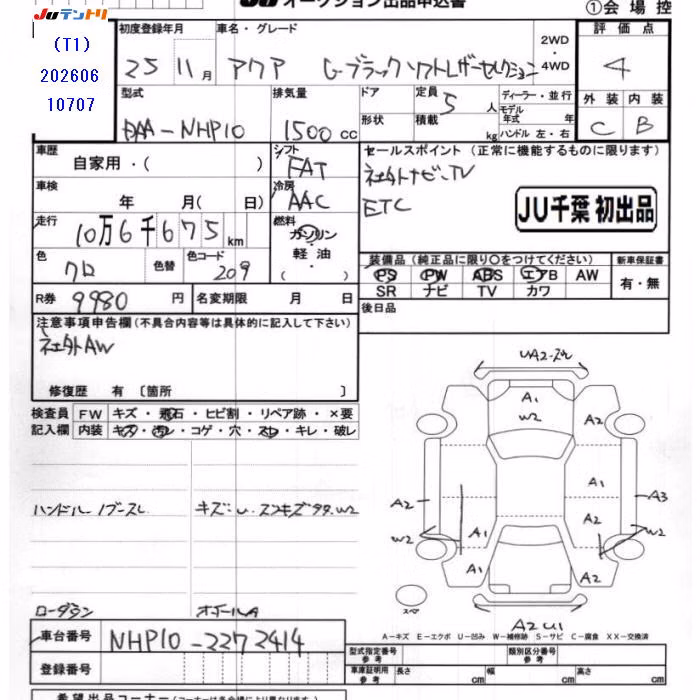 JUテントリ
(T1)
202606
10707
JU オークション出品申込書
①会場控
初度登録年月
25 11月
車名・グレード
アクア G-ブラックソフトレザーセレクション
2WD・4WD
評価点
4
型式
DAA-NHP10
排気量
1500cc
ドア
形状
定員 5人
積載 kg
ディーラー・並行
モデル年式 年
ハンドル 左・右
外装 内装
C B
車歴
自家用・( )
シフト
FAT
セールスポイント(正常に機能するものに限ります)
社外ナビ・TV
ETC
JU千葉 初出品
車検
年 月( 日)
冷房
AAC
走行
10万6千675km
燃料
ガソリン・軽油
( )
色
クロ
色替
色コード
209
装備品(純正品に限り○をつけてください)
PS PW ABS エアB AW
SR ナビ TV カワ
新車保証書
有・無
R券 9980円
名変期限 月 日
後日品
注意事項申告欄(不具合内容等は具体的に記入して下さい)
社外AW
修復歴 有〔箇所 〕
検査員記入欄
FW キズ・飛石・ヒビ割・リペア跡・×要
内装 キズ・汚レ・コゲ・穴・スレ・キレ・破レ
UA2-ズレ
A1
W2
A2
A2
A1
A3
A2
W2
W2
A1
A1
A1
A1
スペア
A2 U1
ハンドル ノブ-スレ
キズ・U・スリキズ 99.W2
ローダウン
A-キズ E-エクボ U-凹み W-補修跡 S-サビ C-腐食 XX-交換済
車台番号
NHP10-2272414
登録番号
型式指定番号 参考
類別区分番号 参考
車庫証明用 参考
長さ cm
幅 cm
高さ cm
希望出品コーナー(コーナーは各会場により異なります)